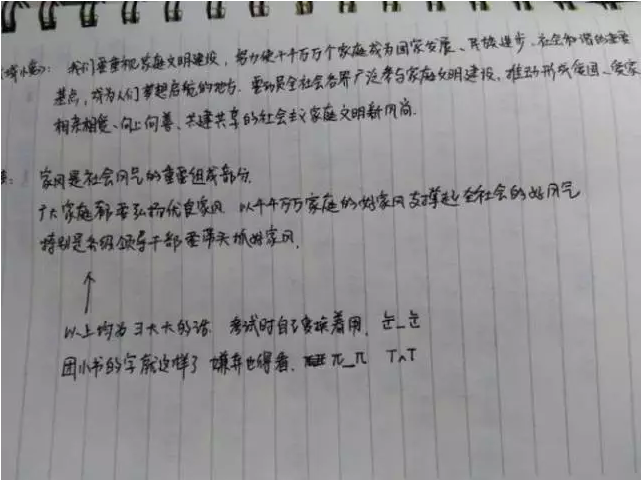 我们要重视家庭文明建设，努力使千千万万个家庭成为国家发展、民族进步、社会和谐的重要
基点，成为人们梦想启航的地方．要动员全社会各界广泛参与家庭文明建设，推动形成爱国、爱家
相亲相爱、向上向善、共建共享的社会主义家庭文明新风尚．
家风是社会风气的重要组成部分．
广大家庭都要弘扬优良家风．以千千万万家庭的好家风支撑起全社会的好风气
特别是各级领导干部要带头抓好家风．
以上均为习大大的话．考试时自己变换着用．눈_눈
团小书的字就这样了 嫌弃也得看． π_π T^T